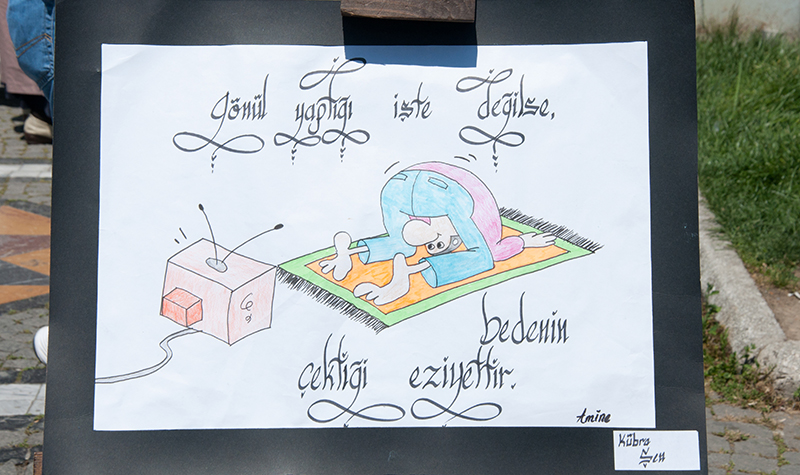 gönül yaptığı işte değilse,
bedenin
çektiği eziyettir.
Amine
Kübra